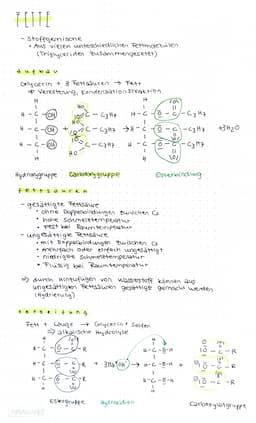 FETTE
- Stoffgemische
• Aus vielen unterschiedlichen Fettmolekülen
(Triglyceriden zusammengesetzt)
Aufbau
Glycerin + 3 Fettsäuren → Fett
⇒ Veresterung, Kondensationsreaktion
H
H - C - OH
H - C - OH
H - C - OH
H
+
HO
C - C₃H₇
HO
C - C₃H₇
HO
C - C₃H₇
→
H
H - C - O - C - C₃H₇
H - C - O - C - C₃H₇
H - C - O - C - C₃H₇
H
+3H₂O
Hydroxygruppe Carboxylgruppe Esterbindung
Fettsäuren
- gesättigte Fettsäure
• ohne Doppelbindungen zwischen Cs
• hohe Schmelztemperatur
• Fest bei Raumtemperatur
- ungesättigte Fettsäure
• mit Doppelbindungen zwischen Cs
• mehrfach oder einfach ungesättigt
• niedrigere Schmelztemperatur
• Flüssig bei Raumtemperatur
⇒ durch Hinzufügen von Wasserstoff können aus
ungesättigten Fettsäuren gesättigte gemacht werden
(Hydrierung)
Verseifung
Fett + Lauge → Glycerin + Seifen
⇒ alkalische Hydrolyse
H - C - O - C - R
H - C - O - C - R
H - C - O - C - R
H
→
H - C - O - H
H - C - O - H
H - C - O - H
H
+
C - R
C - R
C - R
Estergruppe Hydroxidion Carboxylatgruppe